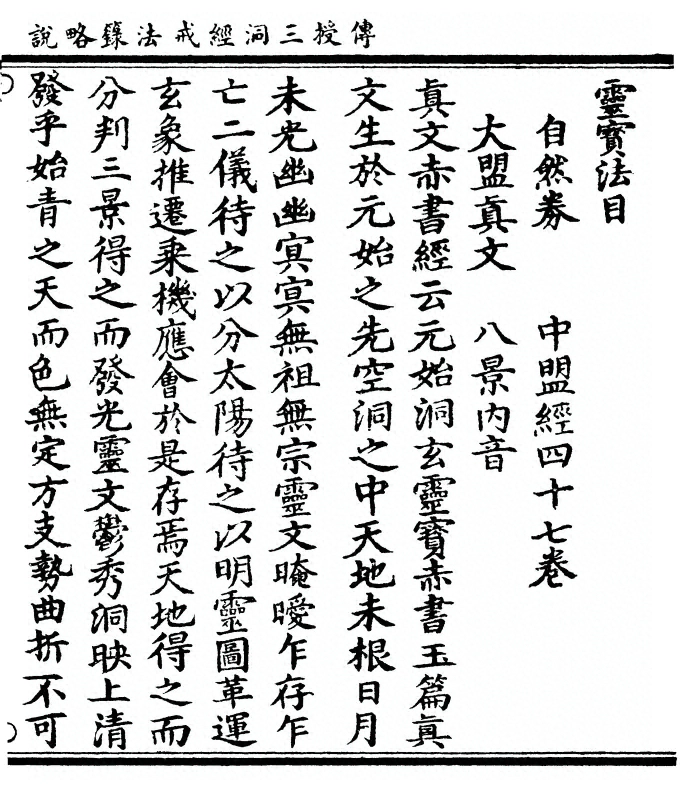 傳授三洞經戒法籙略說
靈寶法目
自然券 中盟經四十七卷
大盟眞文 八景內音
眞文赤書經云元始洞玄靈寶赤書玉篇眞
文生於元始之先空洞之中天地未根日月
未光幽幽冥冥無祖無宗靈文晻曖乍存乍
亡二儀待之以分太陽待之以明靈圖革運
玄象推遷乘機應會於是存焉天地得之而
分判三景得之而發光靈文鬱秀洞映上清
發乎始青之天而色無定方支勢曲折不可